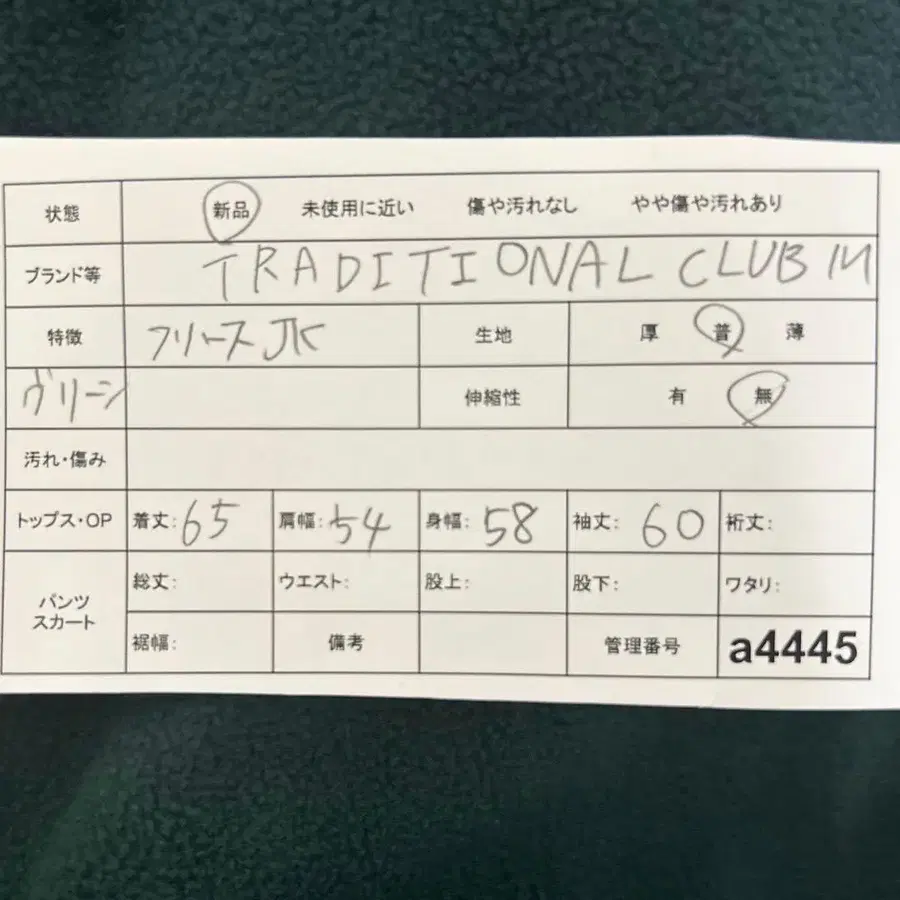 状態 新品 未使用に近い 傷や汚れなし やや傷や汚れあり
ブランド等 TRADITIONAL CLUB IM
特徴 フリースJK 生地 厚 普 薄
グリーン 伸縮性 有 無
汚れ・傷み
トップス・OP 着丈: 65 肩幅: 54 身幅: 58 袖丈: 60 裄丈:
パンツ スカート 総丈: ウエスト: 股上: 股下: ワタリ:
裾幅: 備考 管理番号 a4445